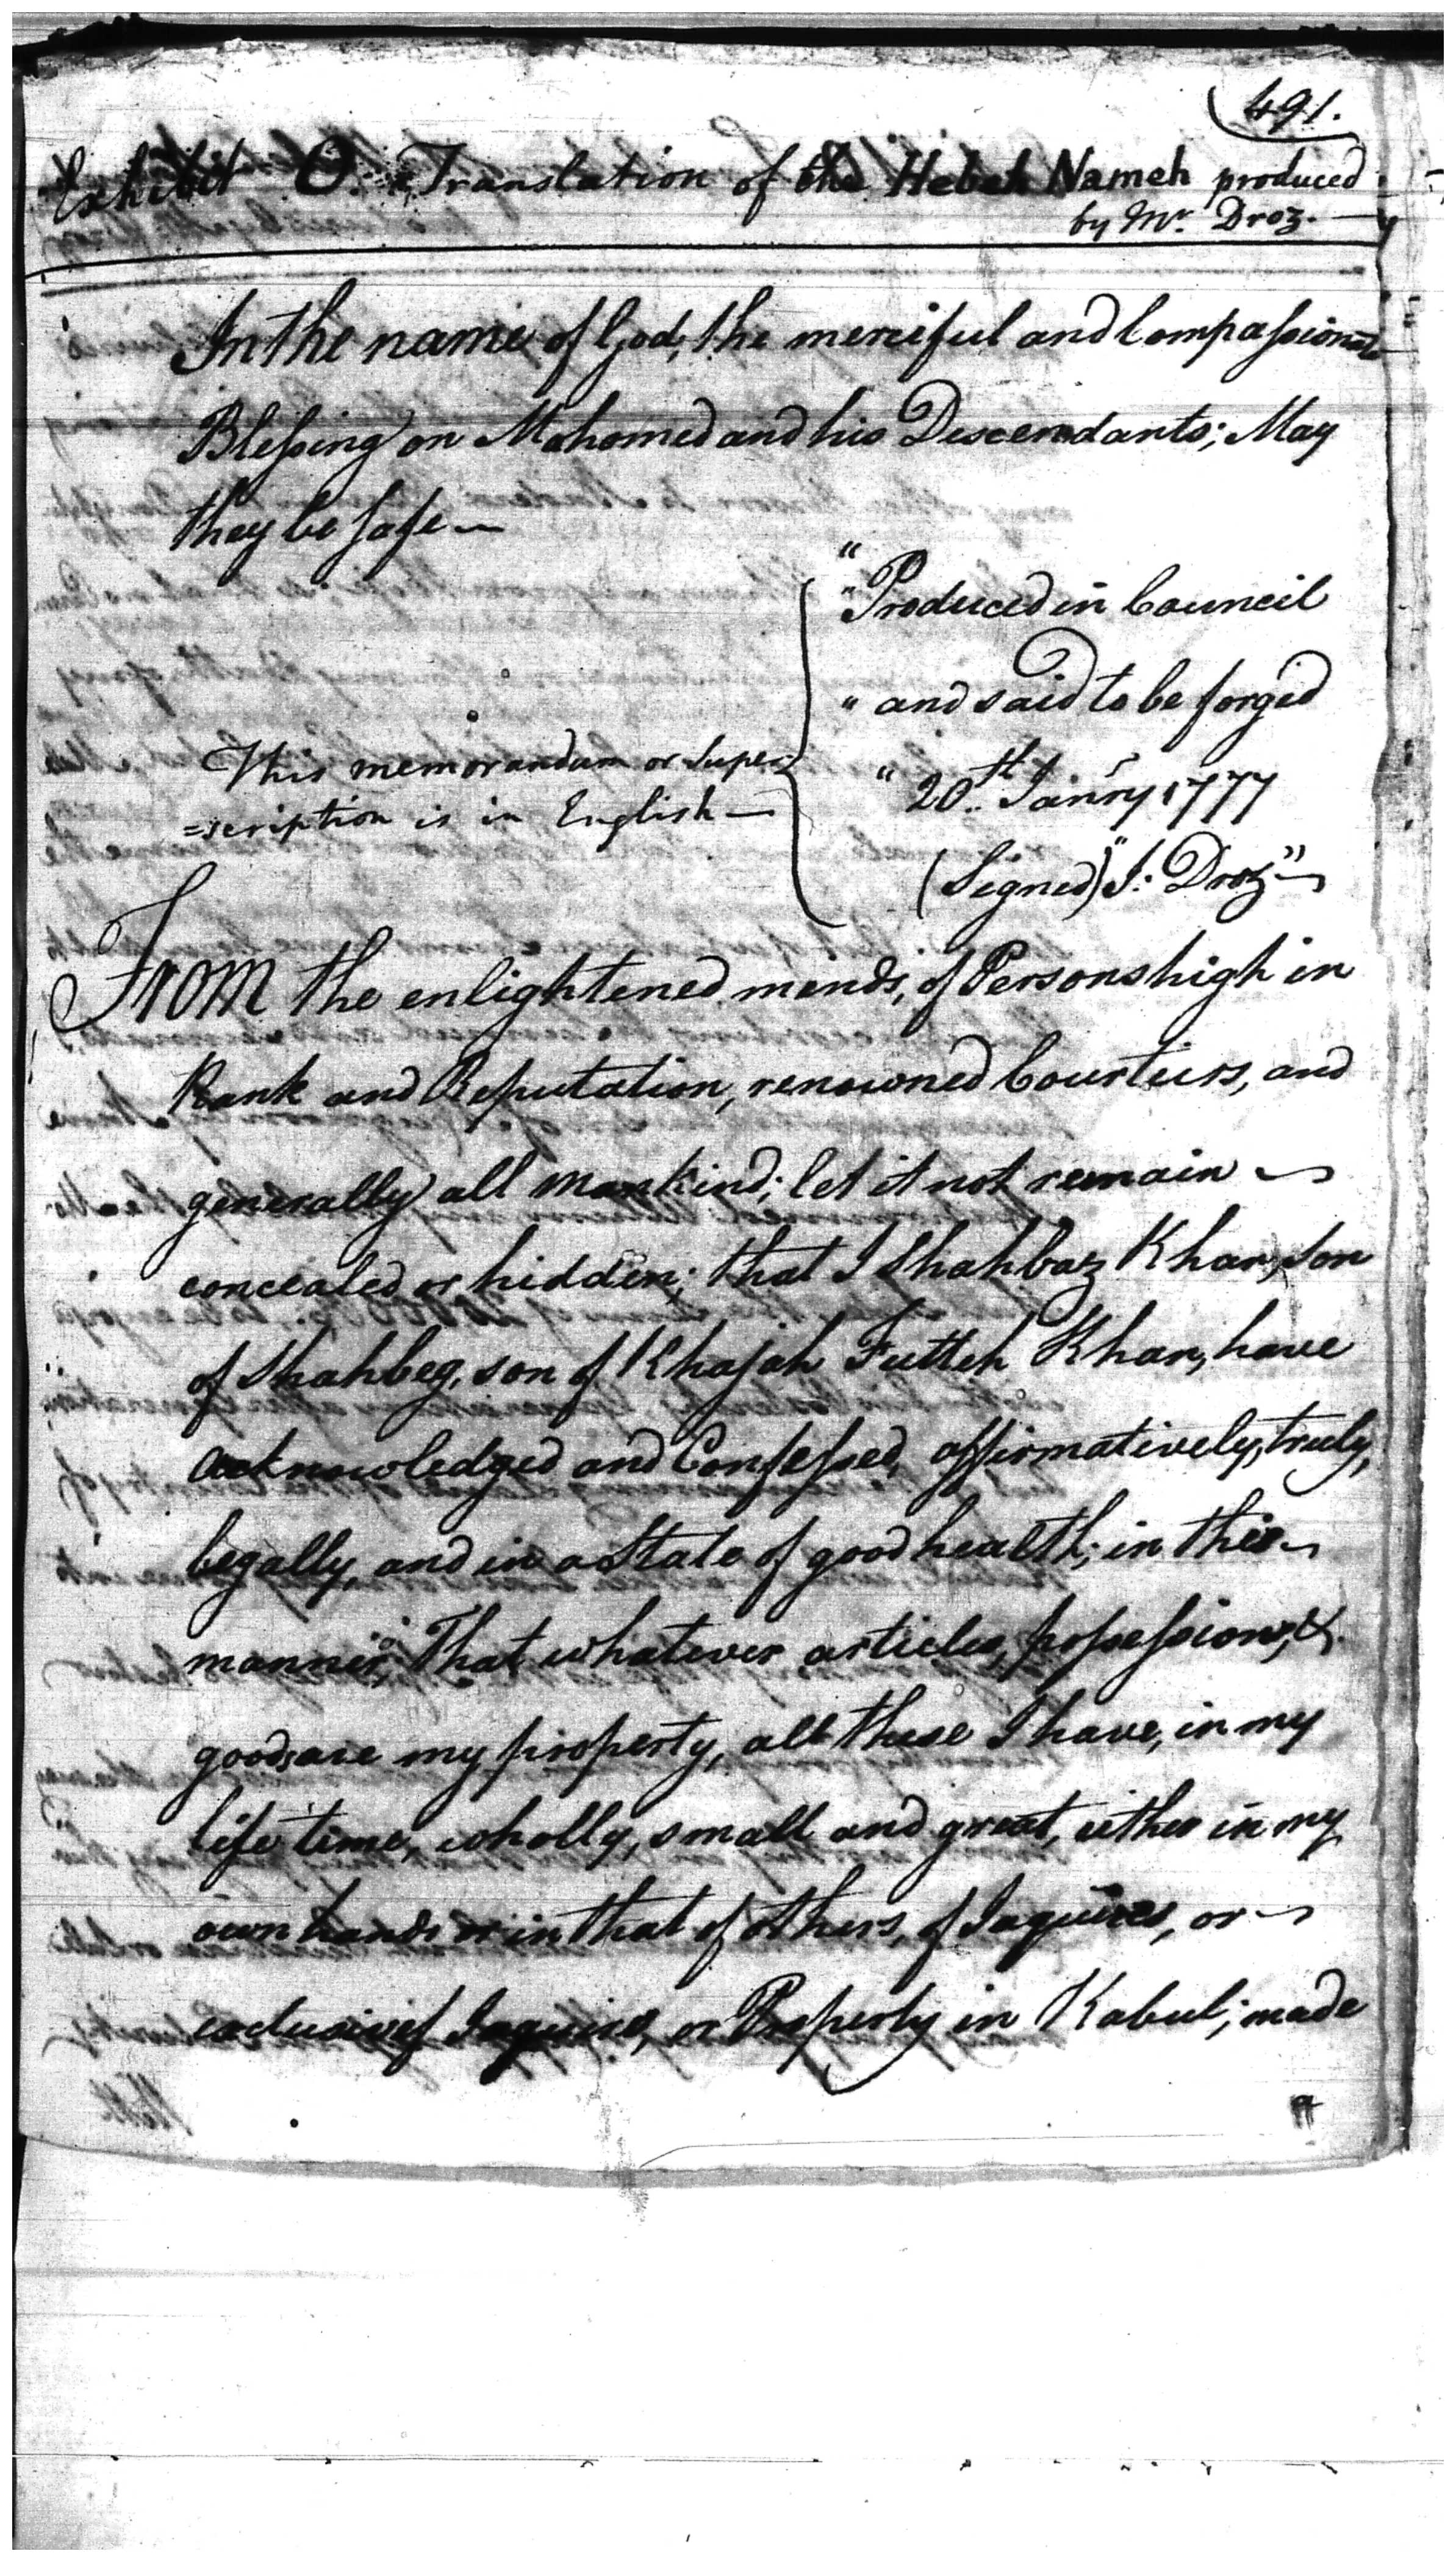 491.
Exhibit O. Translation of the Hebeh Nameh produced
by Mr. Droz.
In the name of God, the merciful and Compassionate
Blessing on Mahomed and his Descendants; May
they be safe —
"Produced in Council
" and said to be forged
This memorandum or Super=
=scription is in English —
" 20th. Janry 1777
(Signed) "J: Droz"
From the enlightened minds, of Persons high in
Rank and Reputation, renowned Courtiers, and
generally all Mankind; let it not remain
concealed or hidden; that I Shahbaz Khan, Son
of Shahbeg, son of Khajah Futteh Khan, have
acknowledged and Confessed, affirmatively, truly,
legally, and in a State of good health; in this
manner, That whatever articles, possessions, &
goods are my property, all these I have, in my
life time, wholly, small and great, either in my
own hands or in that of others, of Jaguires, or
exclusive of Jaguires, or Property in Kabul; made
a